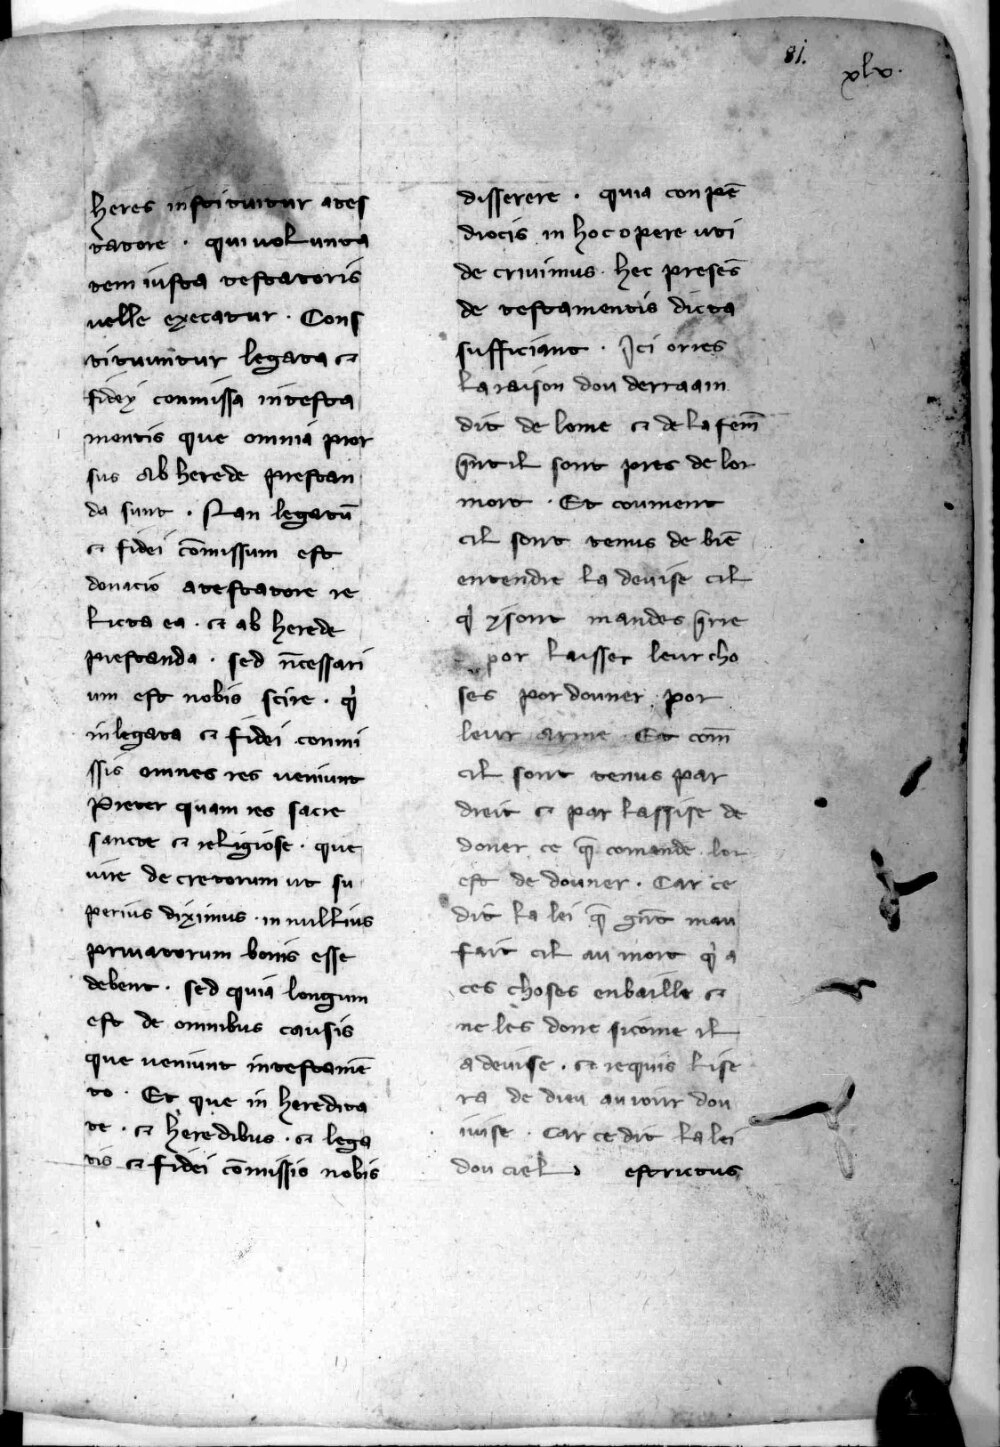 81.
xlv.
heres instituitur a tes
tatore . qui uolunta
tem iusta testatoris
uelle execatur . Cons
tituuntur legata ⁊
fidei commissa in testa
mentis que omnia pror
sus ab herede prestan
da sunt . Nan legatū
⁊ fidei cōmissum est
donacio a testatore re
licta ea . ⁊ ab herede
prestanda . sed nēcessari
um est nobis scire . q̇
in legata ⁊ fidei commi
ssis omnes res ueniunt
Preter quam res sacre
sancte ⁊ religiose . que
iure decretorum ut su
perius diximus . in nullius
priuatorum bonis esse
debent . sed quia longum
est de omnibus causis
que ueniunt in testamē
to . Et que in heredita
te . ⁊ heredibus . ⁊ lega
tis ⁊ fidei cōmissio nobis
disserere . quia conpē
diocis in hoc opere uti
de criuimus . hec presēs
de testamentis dicta
sufficiant . Ici orres
la raison dou derraam
dit de lome ⁊ de la fem̄
q̄nt il sont pres de lor
mort . Et coument
cil sont tenus de biē
entendre la deuise cil
q̇ y sont mandes q̄rre
por laisser leur cho
ses por douner . por
leur arme . Et com̄
cil sont tenus par
dreit ⁊ par lassise de
doner ce q̄ comande lor
est de douner . Car ce
dit la lei q̄ gn̄t mau
fait cil au mort q̇ a
ces choses en baille ⁊
ne les done sicome il
a deuise . ⁊ requis li se
ra de dieu au iour dou
iuise . Car ce dit la lei
dou ciel . estrictus